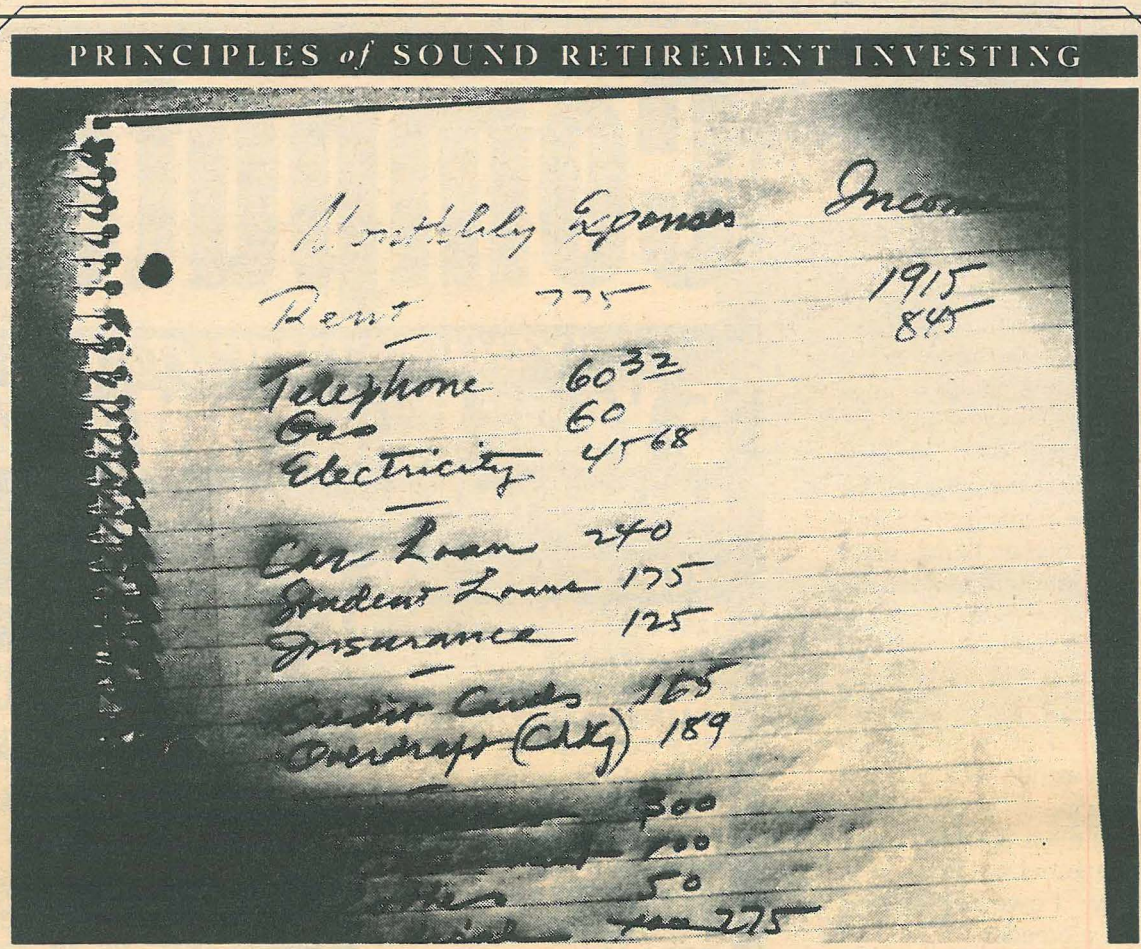 PRINCIPLES of SOUND RETIREMENT INVESTING
Monthlyly Expenses Income
Rent 775 1915
845
Telephone 60 32
Gas 60
Electricity 45 68
Car Loan 240
Student Loans 175
Insurance 125
Credit Cards 165
Overdraft (Chkg) 189
300
100
50
275